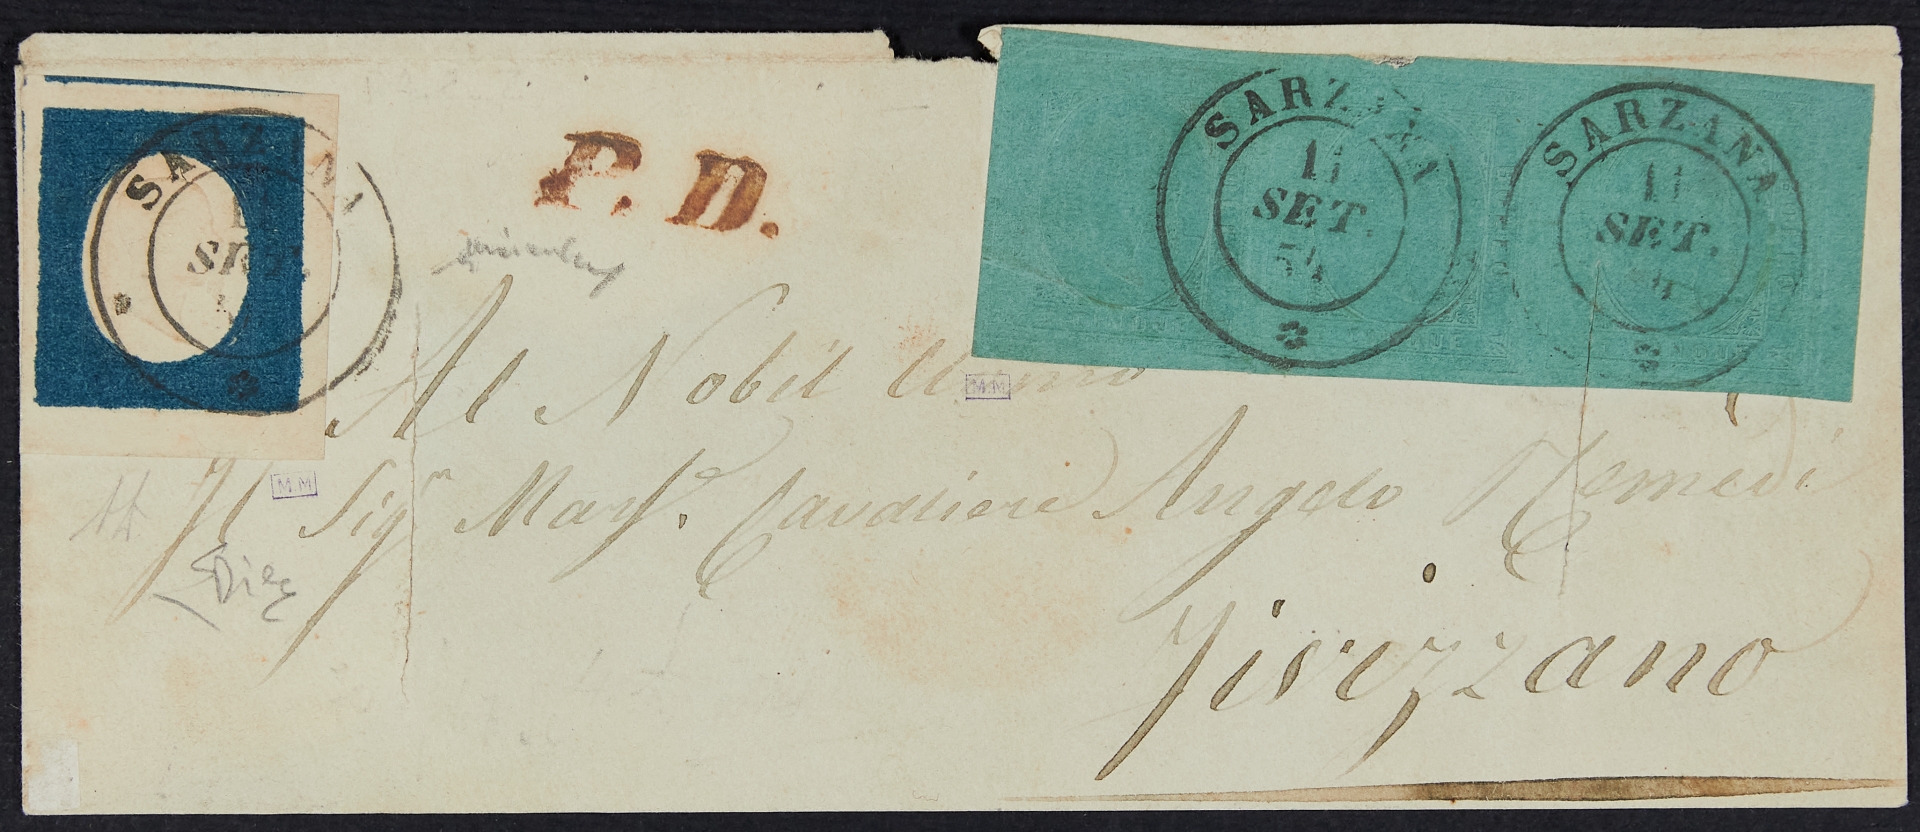 SARZANA
SET.
P. D.
SARZANA
11
SET.
54
SARZANA
11
SET.
54
Al Nobil Uomo
M.M
M.M
Il Sig.r March.e Cavaliere Angelo Remedi
Diez
Fivizzano